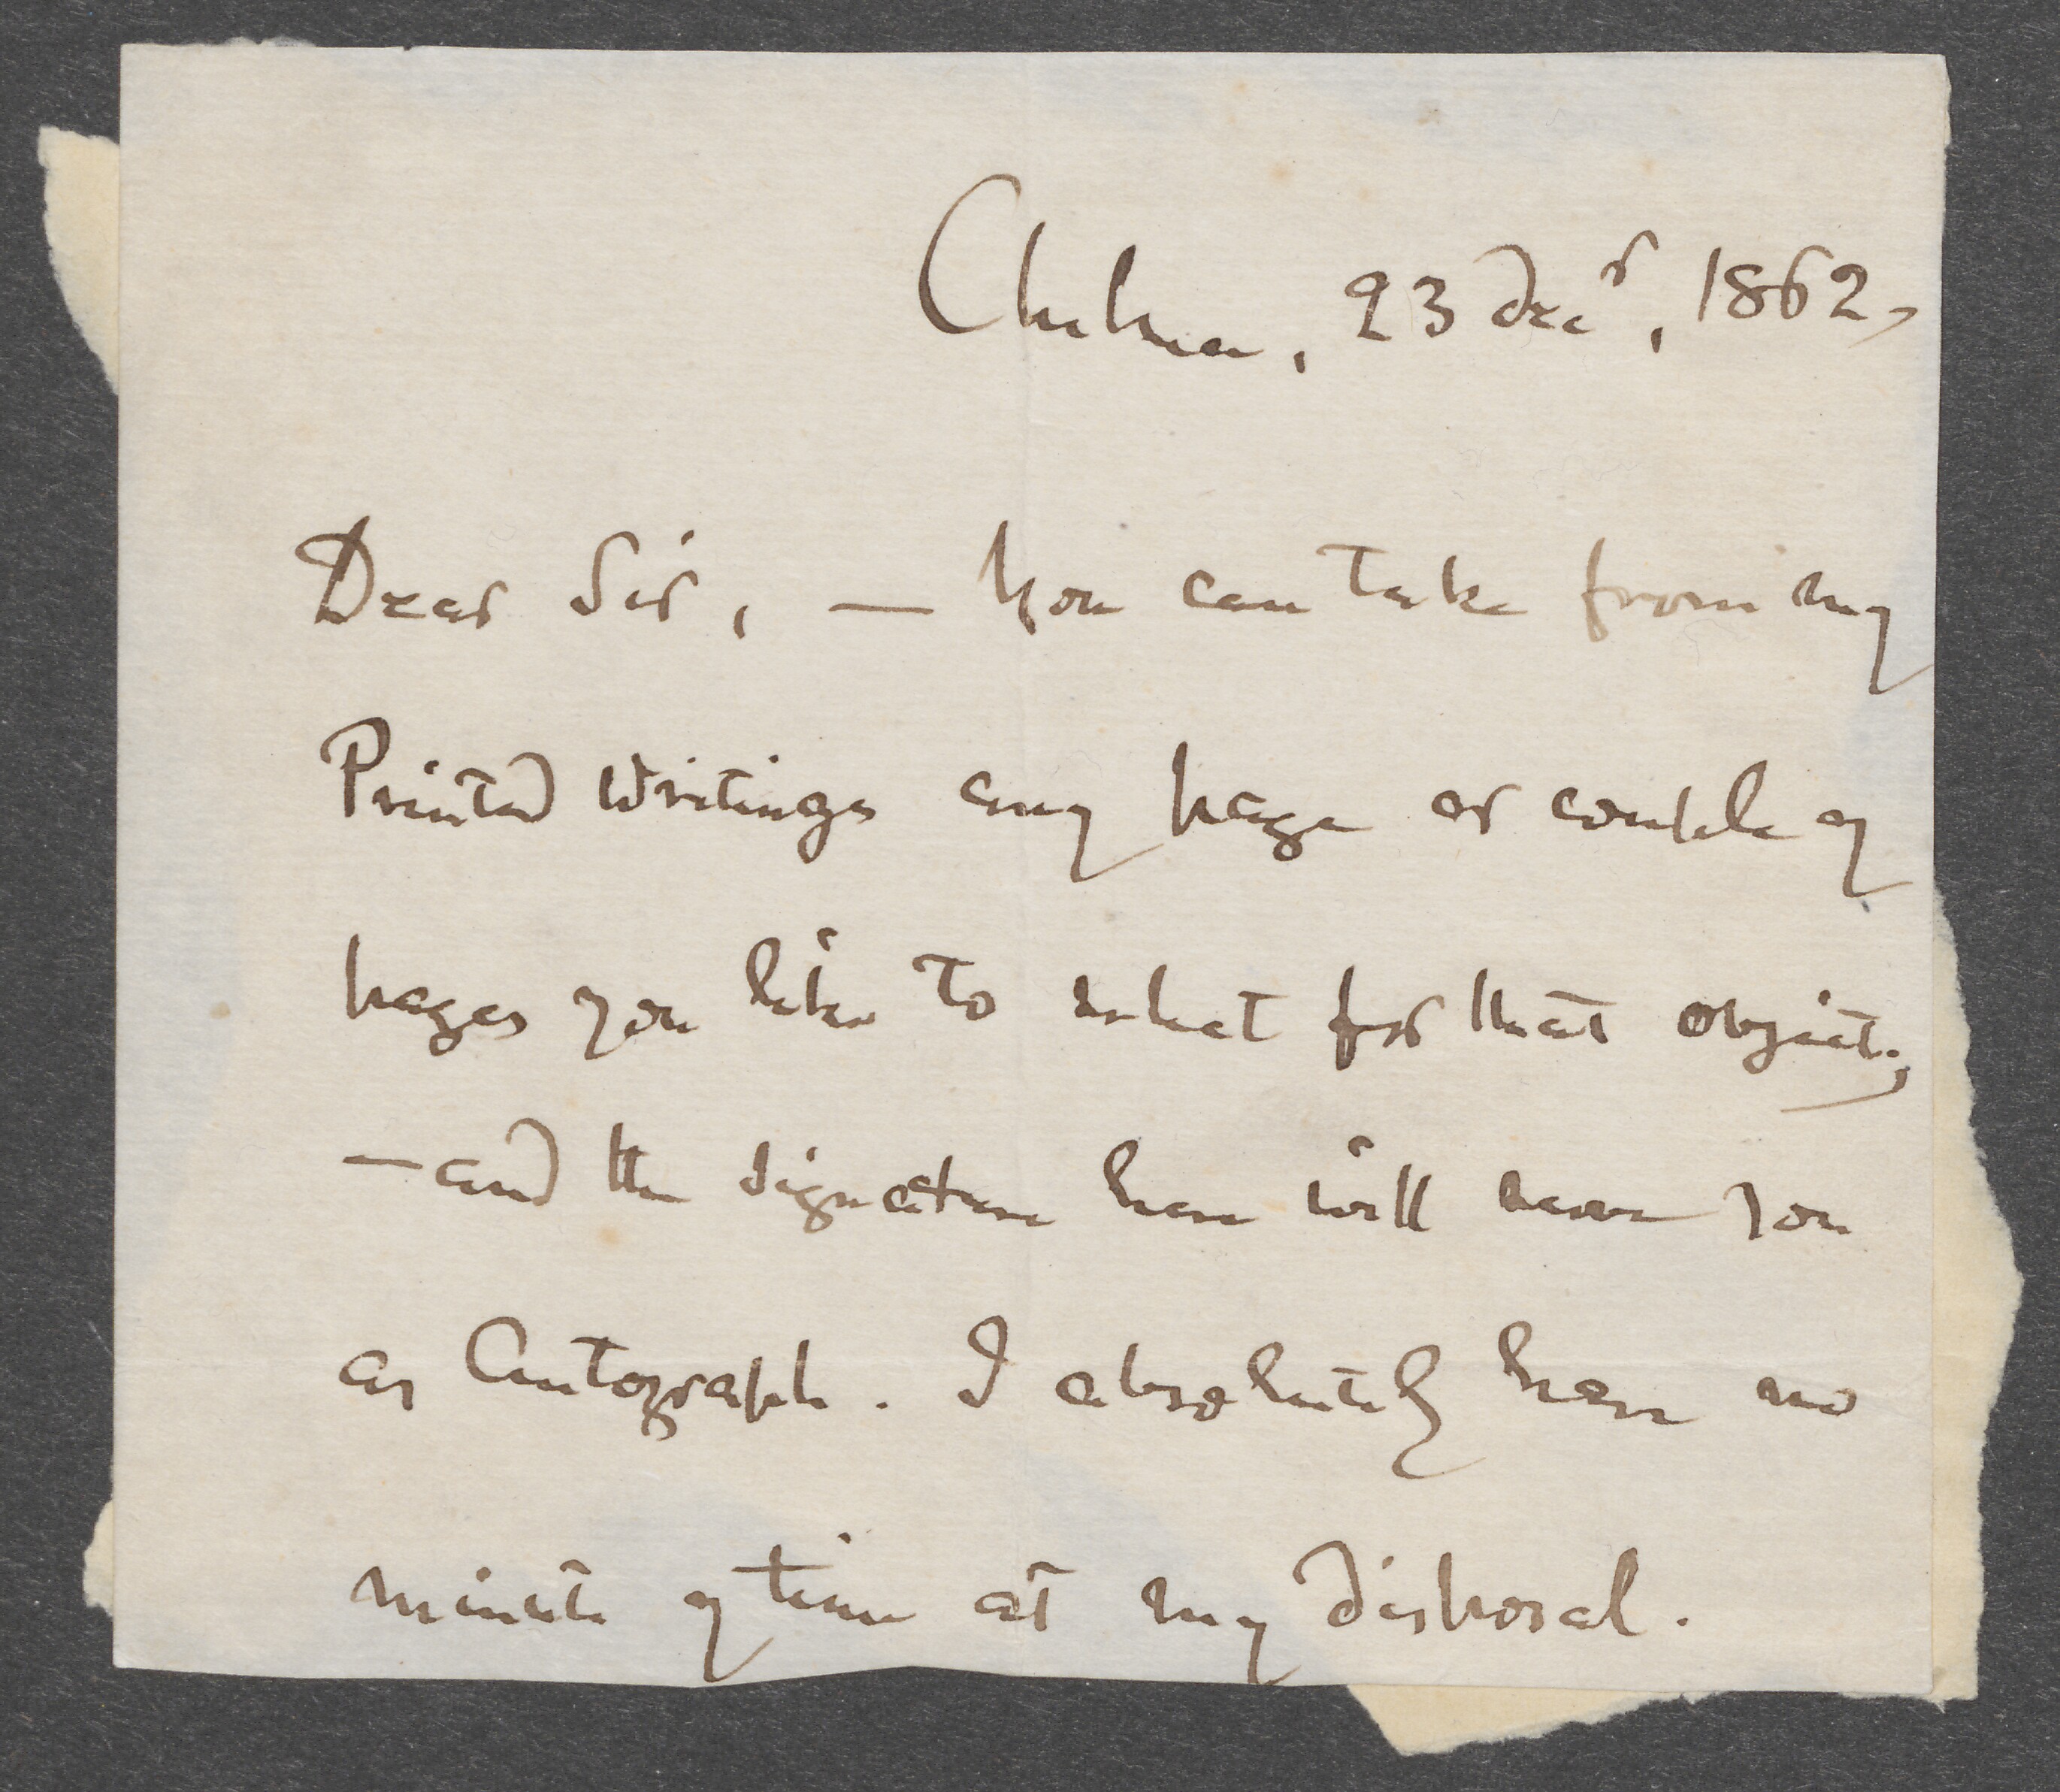 Chelsea, 23 decr, 1862,
Dear Sir, — You can take from my
Printed Writings any page or couple of
pages you like to select for that object;
— and the signature here will serve you
as Autograph. I absolutely have no
minute of time at my disposal.